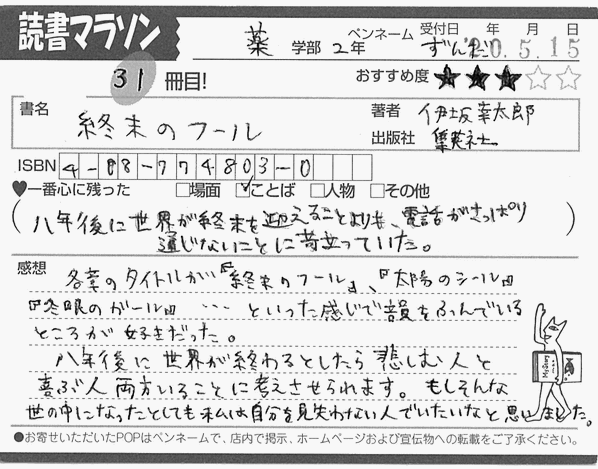 読書マラソン
薬 学部 2年
ペンネーム ずんだ
受付日 年 月 日
'20.5.15
31 冊目!
おすすめ度 ★★★☆☆
書名 終末のフール
著者 伊坂幸太郎
出版社 集英社
ISBN 4-08-774803-0
♥一番心に残った □場面 ☑ことば □人物 □その他
(八年後に世界が終末を迎えることよりも、電話がさっぱり
通じないことに苛立っていた。)
感想
各章のタイトルが『終末のフール』、『太陽のシール』
『冬眠のガール』 … といった感じで韻をふんでいる
ところが好きだった。
八年後に世界が終わるとしたら悲しむ人と
喜ぶ人両方いることに考えさせられます。もしそんな
世の中になったとしても私は自分を見失わない人でいたいなと思いました。
●お寄せいただいたPOPはペンネームで、店内で掲示、ホームページおよび宣伝物への転載をご了承ください。